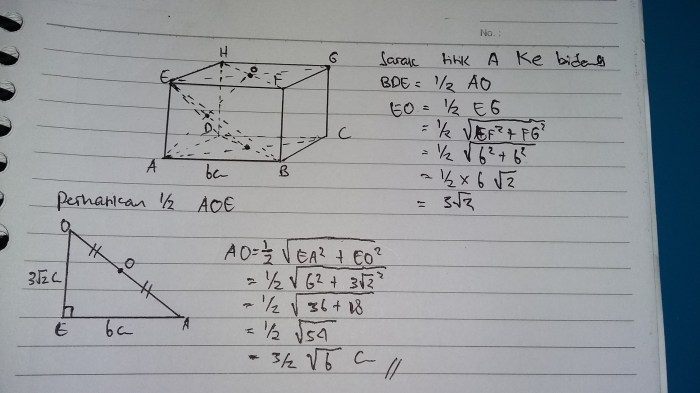 No.:
H
G
E
F
O
D
C
A
B
6c
Jarak titik A ke bidang
BDE = 1/2 AO
EO = 1/2 EG
= 1/2 √EF² + FG²
= 1/2 √6² + 6²
= 1/2 × 6 √2
= 3√2
Perhatikan 1/2 AOE
O
O
3√2 c
E
6c
A
AO = 1/2 √EA² + EO²
= 1/2 √6² + 3√2²
= 1/2 √36 + 18
= 1/2 √54
= 3/2 √6 C //